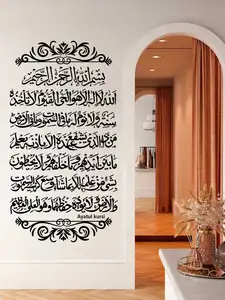 بسم الله الرحمن الرحيم
الله لا إله إلا هو الحي القيوم لا تأخذه
سنة ولا نوم له ما في السموات وما في الأرض
من ذا الذي يشفع عنده إلا بإذنه يعلم
ما بين أيديهم وما خلفهم ولا يحيطون
بشيء من علمه إلا بما شاء وسع كرسيه السموات
والأرض ولا يؤده حفظهما وهو العلي العظيم
Ayatul kursi